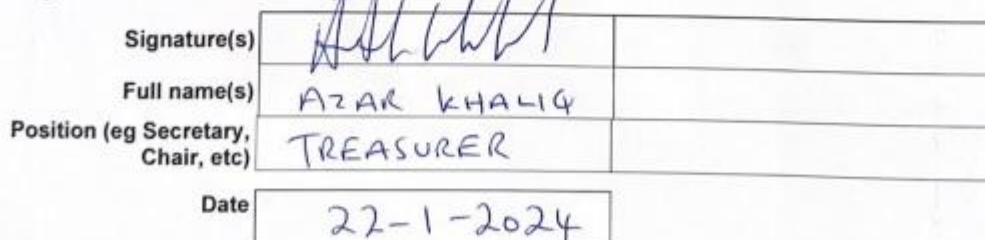 Signature(s)
Full name(s) AZAR KHALIQ
Position (eg Secretary,
Chair, etc) TREASURER
Date 22-1-2024